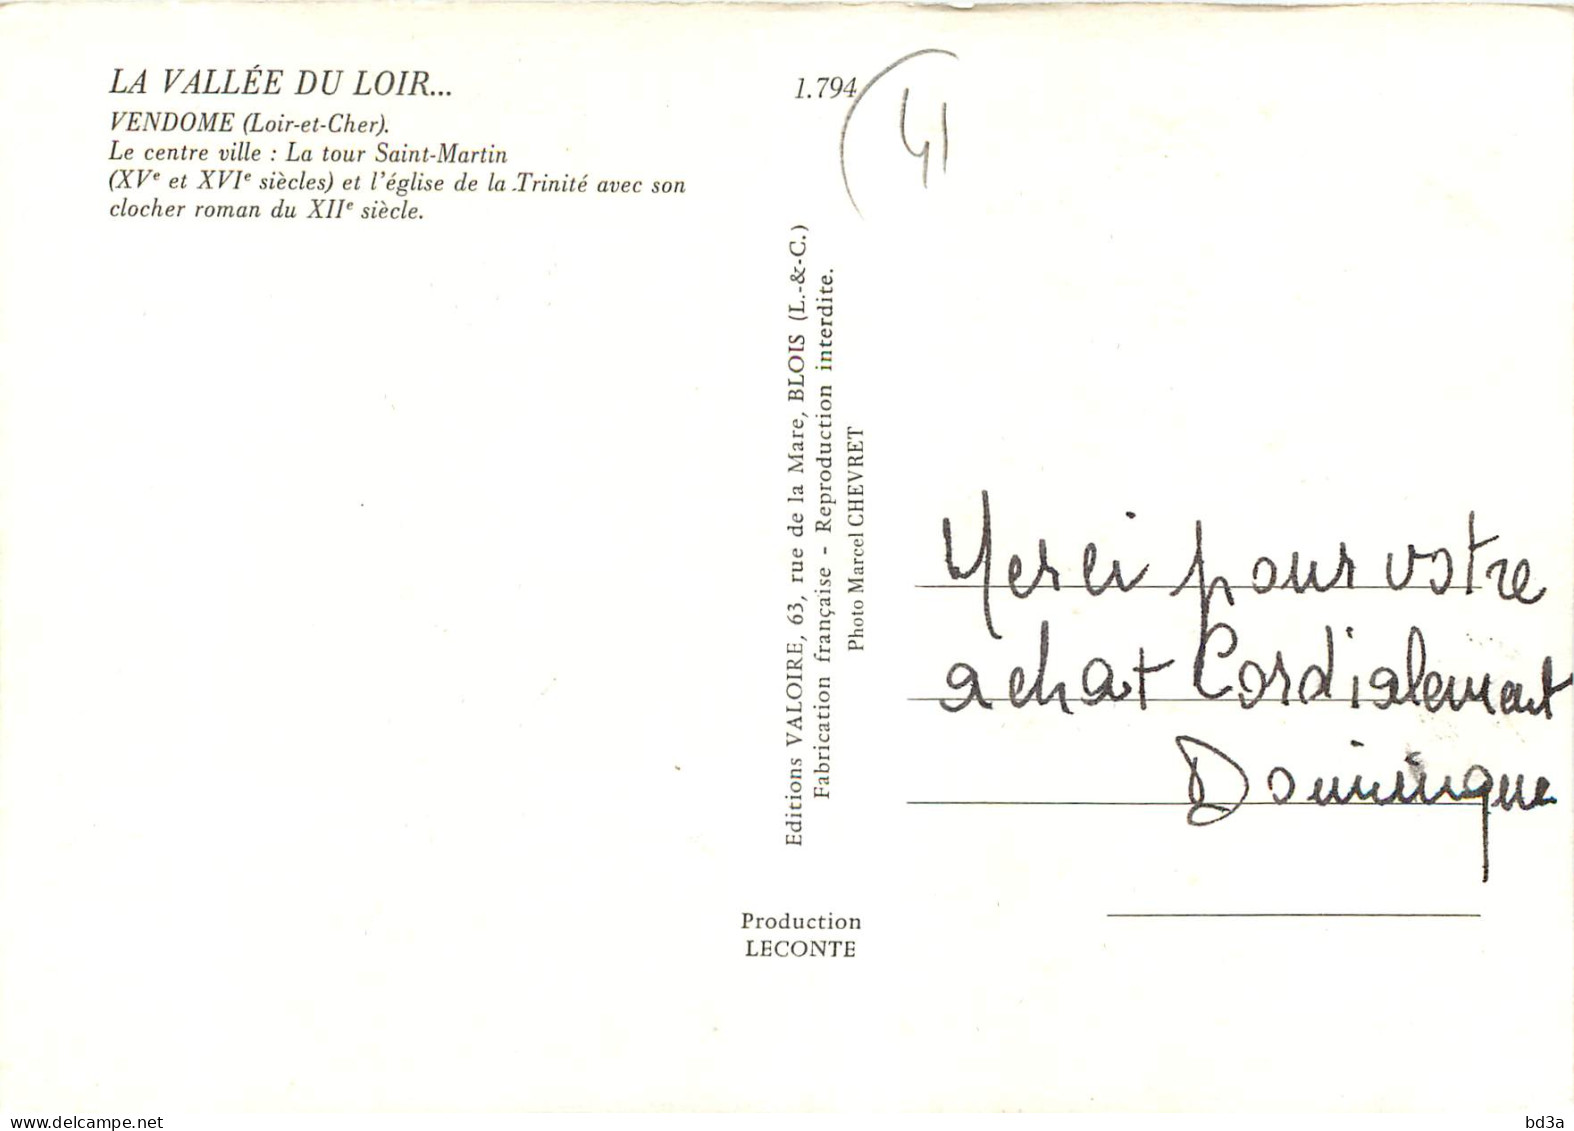 LA VALLÉE DU LOIR...
VENDOME (Loir-et-Cher).
Le centre ville : La tour Saint-Martin
(XVe et XVIe siècles) et l'église de la Trinité avec son
clocher roman du XIIe siècle.
1.794
41
Editions VALOIRE, 63, rue de la Mare, BLOIS (L.-&-C.)
Fabrication française - Reproduction interdite.
Photo Marcel CHEVRET
Production
LECONTE
Merci pour votre
achat Cordialement
Dominique
delcampe.net
bd3a